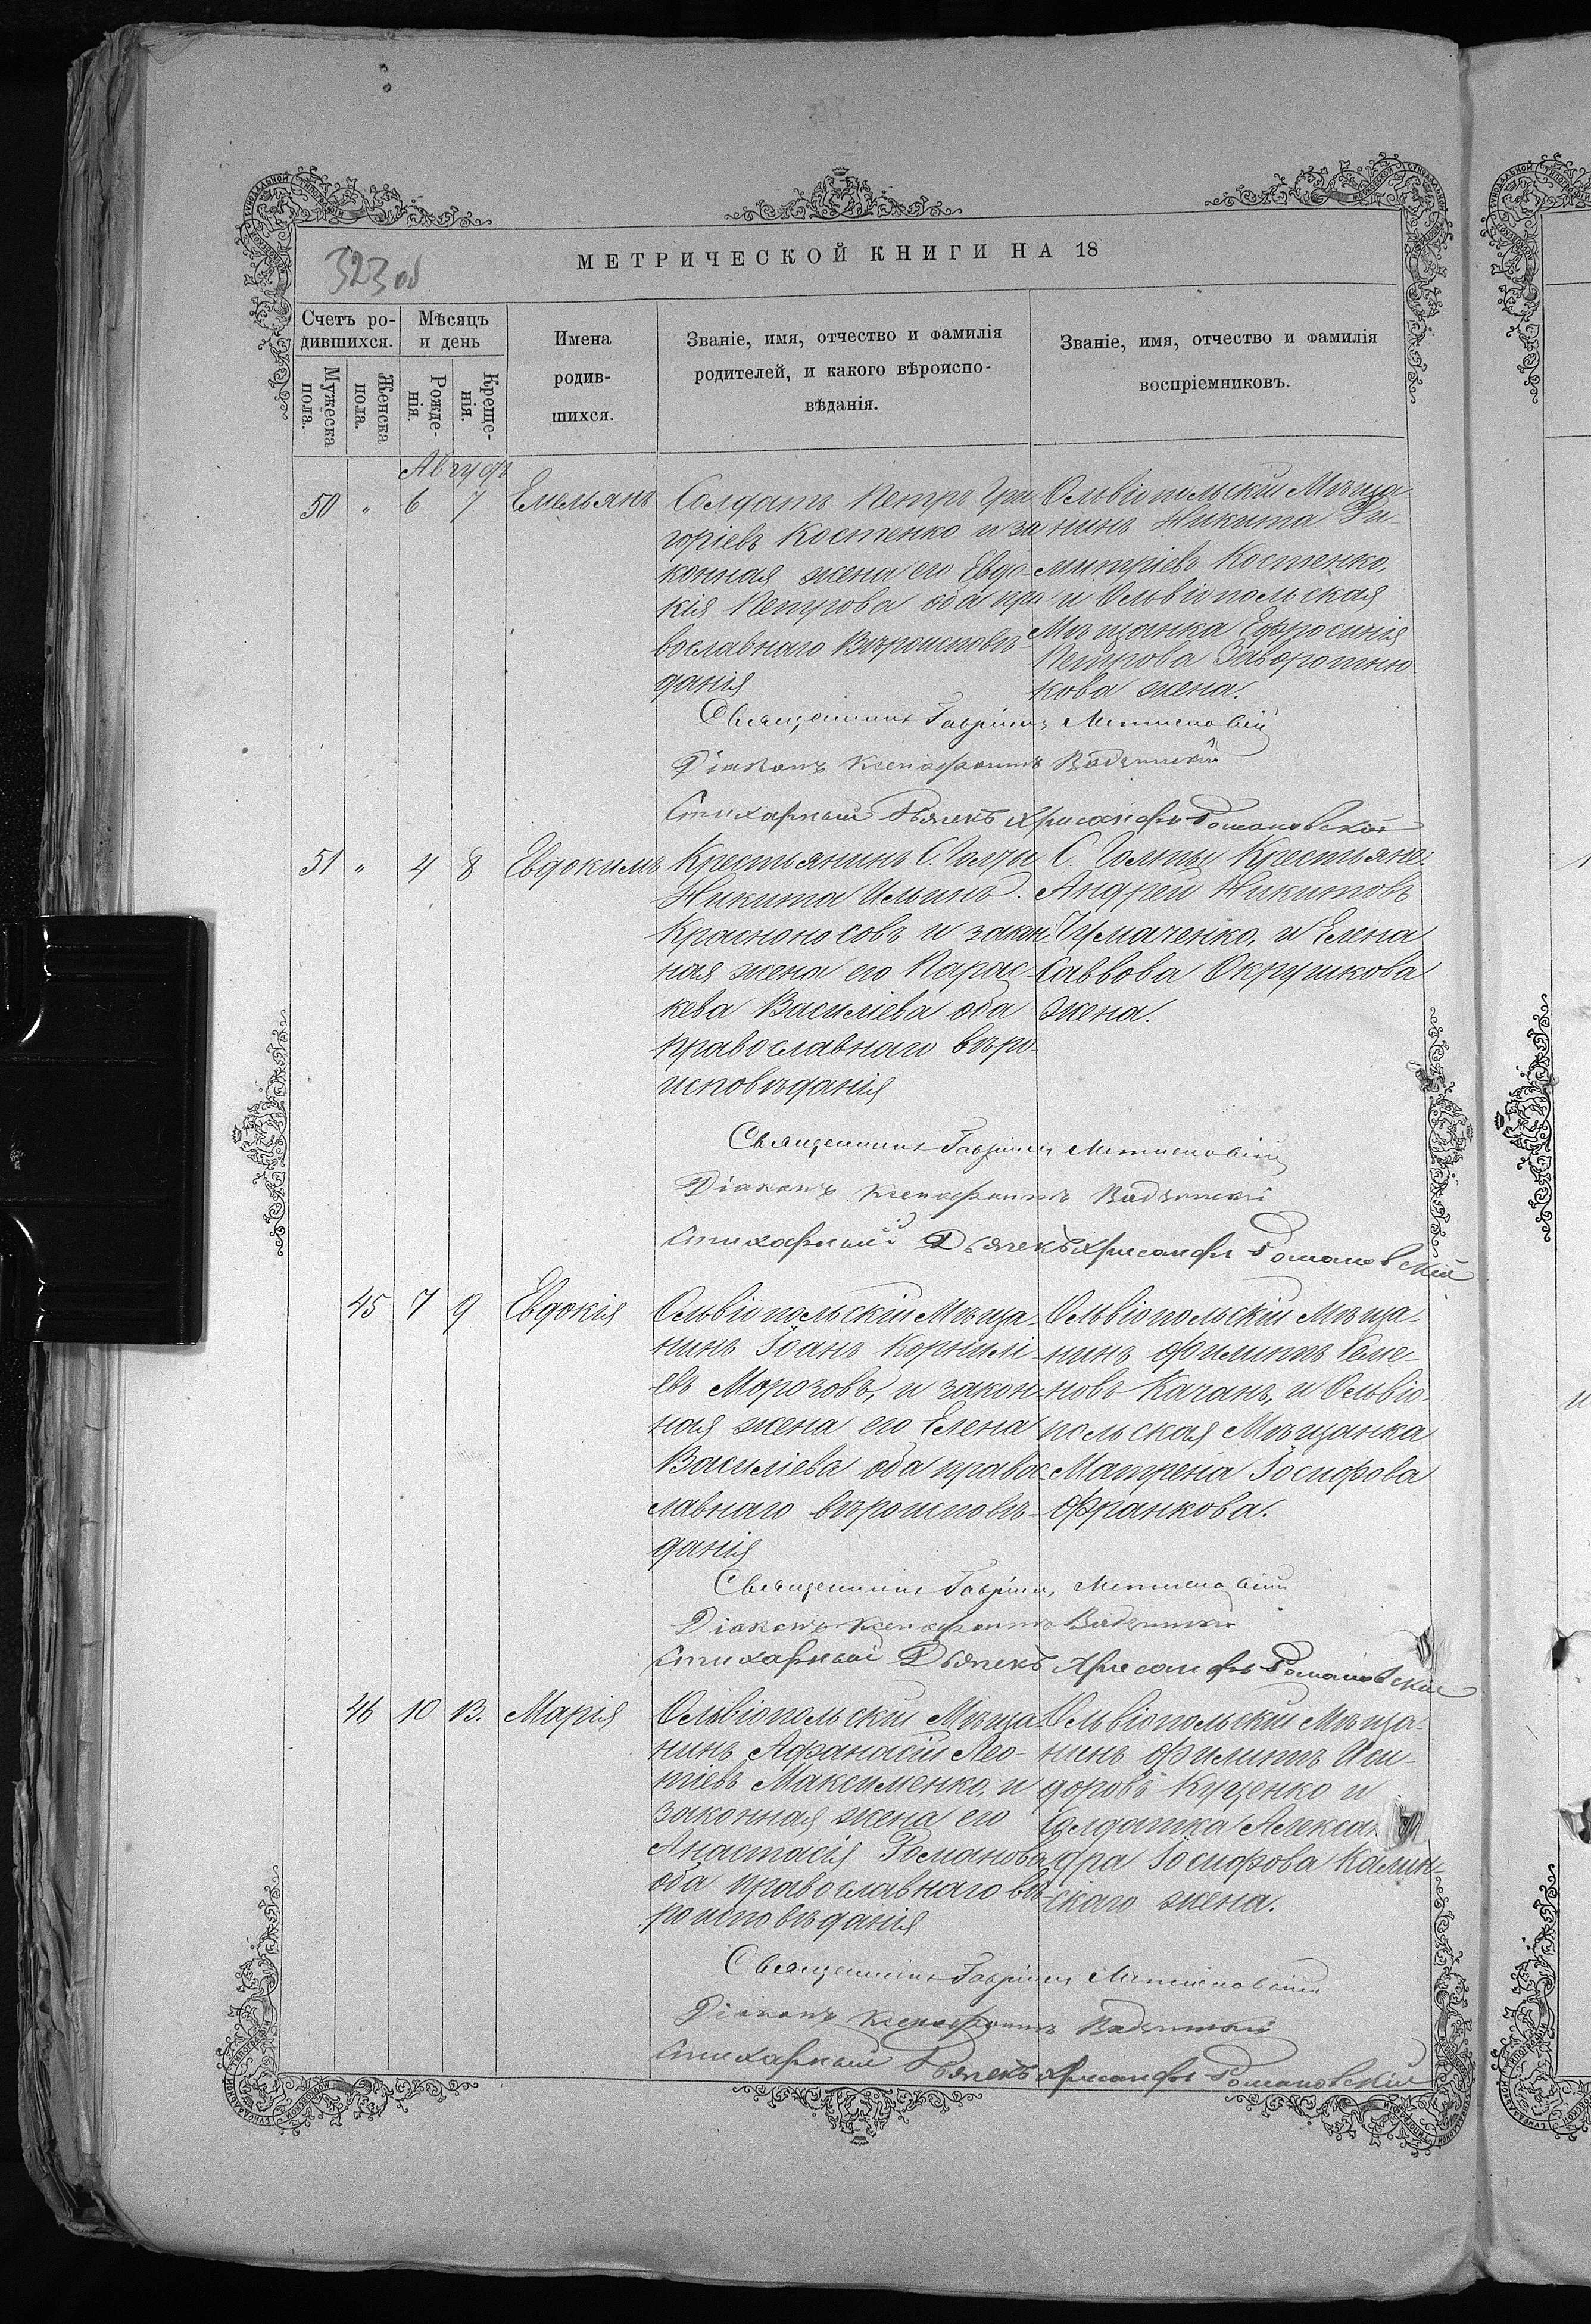 323 об
МЕТРИЧЕСКОЙ КНИГИ НА 18
Счетъ ро-
дившихся.
Мѣсяцъ
и день
Имена
родив-
шихся.
Званіе, имя, отчество и фамилія
родителей, и какого вѣроиспо-
вѣданія.
Званіе, имя, отчество и фамилія
воспріемниковъ.
Мужеска
пола.
Женска
пола.
Рожде-
нія.
Креще-
нія.
Августъ
50 " 6 7 Емельянъ
Солдатъ Петръ Гри
горіевъ Костенко и за
конная жена его Евдо-
кія Петрова оба пра
вославнаго Вѣроисповѣ-
данія
Ольвіопольскій Мѣща
нинъ Никита Ди-
митріевъ Костенко,
и Ольвіопольская
Мѣщанка Ефросинія
Петрова Заворотню-
кова жена.
Священникъ Гавріилъ
Діаконъ Ксенофонтъ
Стихарный Дьячекъ Хрисанфъ Романовскій
51 " 4 8 Евдокимъ
Крестьянинъ С. Голты
Никита Ильинъ
Красноносовъ и закон-
ная жена его Парас-
кева Василіева оба
православнаго вѣро-
исповѣданія
С. Голты Крестьяне
Андрей Никитовъ
Чумаченко, и Елена
Саввова Окрушкова
жена.
Священникъ Гавріилъ
Діаконъ Ксенофонтъ
Стихарный Дьячекъ Хрисанфъ Романовскій
45 7 9 Евдокія
Ольвіопольскій Мѣща-
нинъ Іоанъ Корнилі-
евъ Морозовъ, и закон-
ная жена его Елена
Василіева оба правос-
лавнаго вѣроисповѣ-
данія
Ольвіопольскій Мѣща-
нинъ Филиппъ Семе-
новъ Качанъ, и Ольвіо-
польская Мѣщанка
Матрена Іосифова
Франкова.
Священникъ Гавріилъ
Діаконъ Ксенофонтъ
Стихарный Дьячекъ Хрисанфъ Романовскій
46 10 13. Марія
Ольвіопольскій Мѣща-
нинъ Афанасій Лео-
нтіевъ Максименко, и
законная жена его
Анастасія Романова
оба православнаго вѣ-
роисповѣданія
Ольвіопольскій Мѣща-
нинъ Филиппъ Иси-
доровъ Куценко и
Солдатка Алексан
дра Іосифова Калин-
скаго жена.
Священникъ Гавріилъ
Діаконъ Ксенофонтъ
Стихарный Дьячекъ Хрисанфъ Романовскій